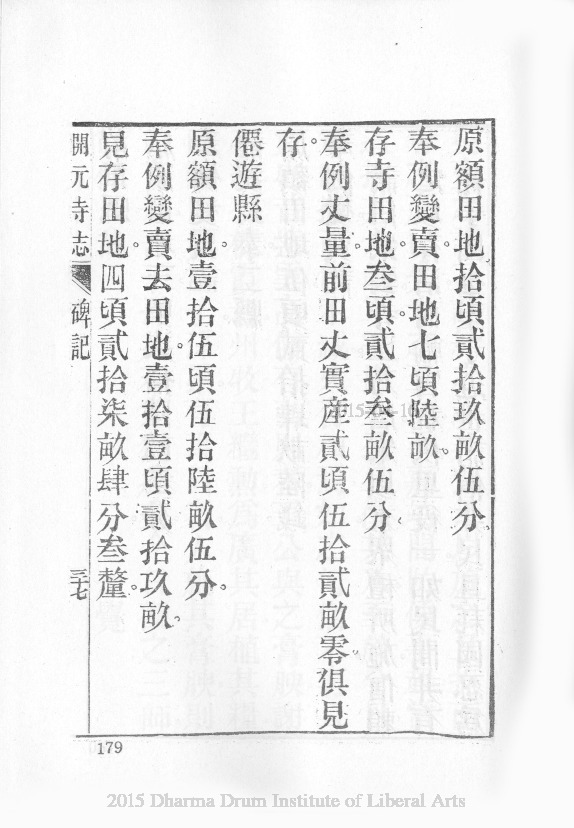 原額田地拾頃貳拾玖畝伍分。
奉例變賣。田地七頃陸畝。
存寺田地。叁頃。貳拾叁畝伍分。
奉例丈量。前田丈實産貳頃伍拾貳畝零。俱見
存。
僊遊縣
原額田地。壹拾伍頃伍拾陸畝伍分。
奉例變賣去田地。壹拾壹頃貳拾玖畝。
見存田地。四頃貳拾柒畝肆分叁釐。
開元寺志 碑記 三七
179
2015 Dharma Drum Institute of Liberal Arts